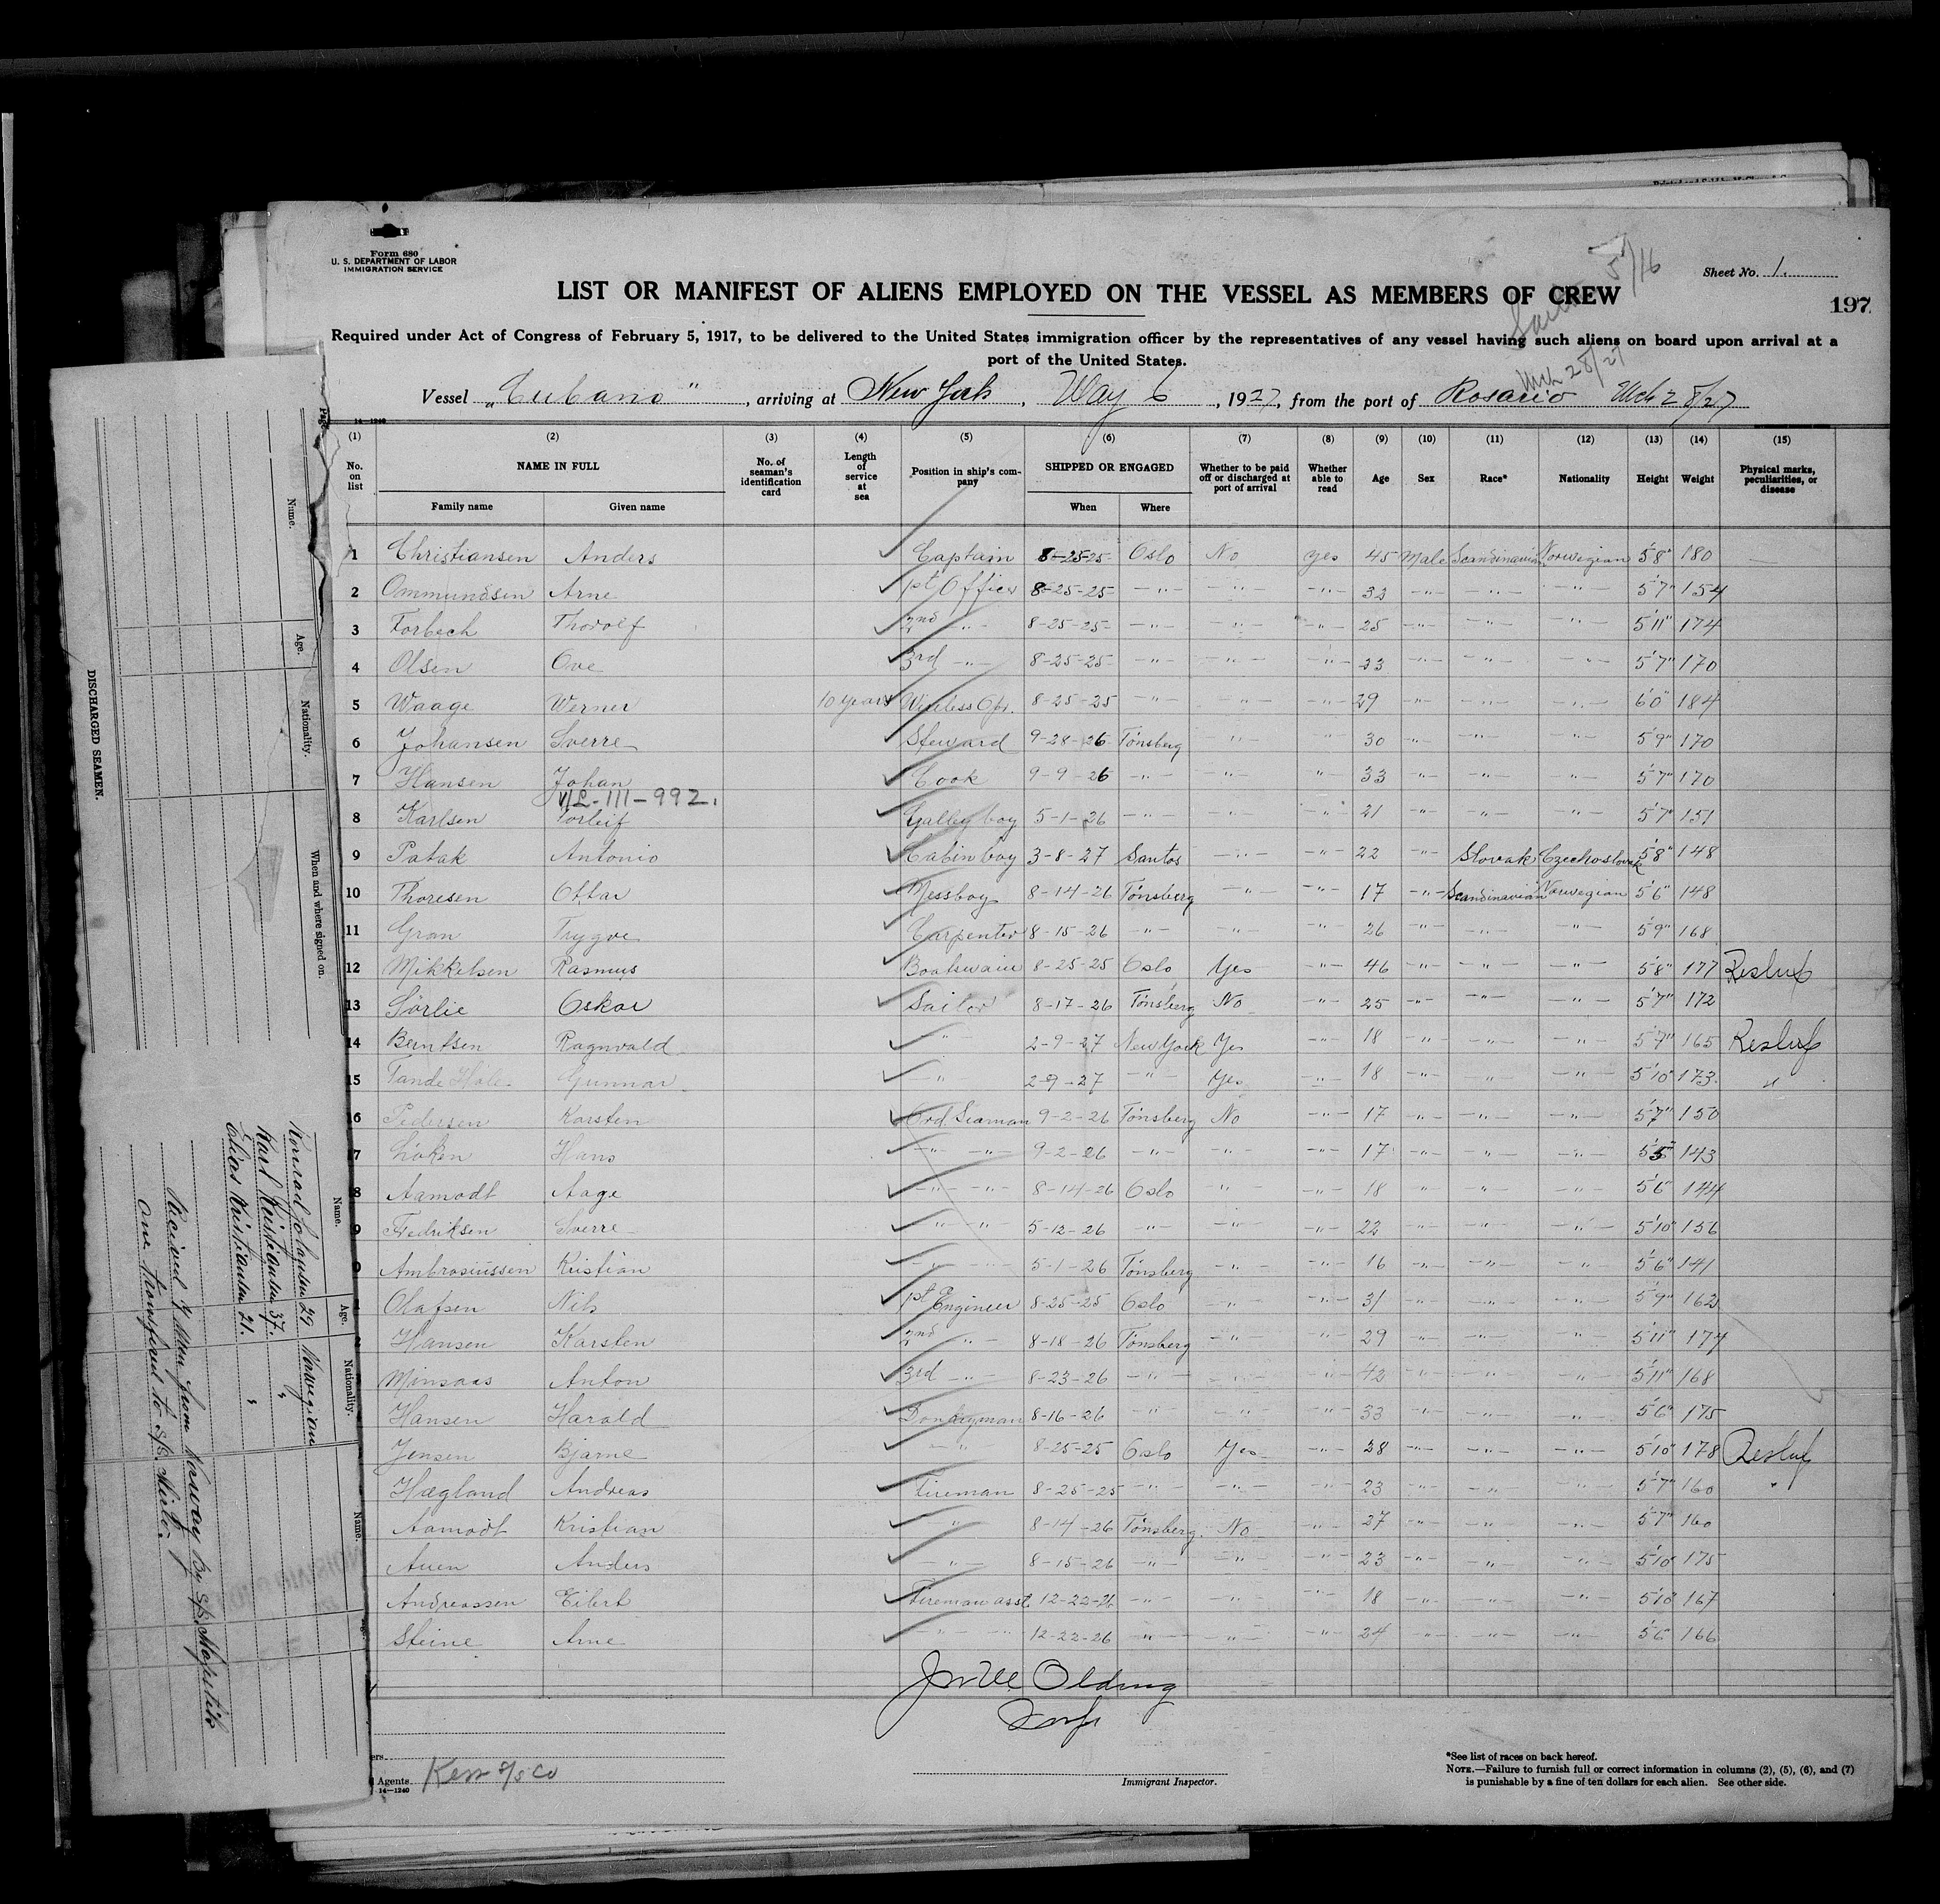 Form 680
U. S. DEPARTMENT OF LABOR
IMMIGRATION SERVICE
Sheet No. 1.
5/16
LIST OR MANIFEST OF ALIENS EMPLOYED ON THE VESSEL AS MEMBERS OF CREW
197
Required under Act of Congress of February 5, 1917, to be delivered to the United States immigration officer by the representatives of any vessel having such aliens on board upon arrival at a
port of the United States.
Mch 28/27
Vessel „Cubano", arriving at New York, May 6, 1927, from the port of Rosario Mch 28/27
14—1240
(1) (2) (3) (4) (5) (6) (7) (8) (9) (10) (11) (12) (13) (14) (15)
No. on list NAME IN FULL No. of seaman's identification card Length of service at sea Position in ship's company SHIPPED OR ENGAGED Whether to be paid off or discharged at port of arrival Whether able to read Age Sex Race* Nationality Height Weight Physical marks, peculiarities, or disease
Family name Given name When Where
1 Christiansen Anders Captain 8-25-25 Oslo No Yes 45 Male Scandinavian Norwegian 5'8" 180
2 Ommundsen Arne 1st Officer 8-25-25 -"- -"- -"- 33 -"- -"- -"- 5'7" 154
3 Torbech Thorolf 2nd -"- 8-25-25 -"- -"- -"- 25 -"- -"- -"- 5'11" 174
4 Olsen Ove 3rd -"- 8-25-25 -"- -"- -"- 33 -"- -"- -"- 5'7" 170
5 Waage Werner 10 years Wireless Op. 8-25-25 -"- -"- -"- 29 -"- -"- -"- 6'0" 184
6 Johansen Sverre Steward 9-28-26 Tönsberg -"- -"- 30 -"- -"- -"- 5'9" 170
7 Hansen Johan Cook 9-9-26 -"- -"- -"- 33 -"- -"- -"- 5'7" 170
V/L-111-992.
8 Karlsen Torleif Galley boy 5-1-26 -"- -"- -"- 21 -"- -"- -"- 5'7" 151
9 Patak Antonio Cabin boy 3-8-27 Santos -"- -"- 22 -"- Slovak Czechoslovak 5'8" 148
10 Thoresen Ottar Messboy 8-14-26 Tönsberg -"- -"- 17 -"- Scandinavian Norwegian 5'6" 148
11 Gran Trygve Carpenter 8-15-26 -"- -"- -"- 26 -"- -"- -"- 5'9" 168
12 Mikkelsen Rasmus Boatswain 8-25-25 Oslo Yes -"- 46 -"- -"- -"- 5'8" 177
13 Sörlie Oskar Sailor 8-17-26 Tönsberg No -"- 25 -"- -"- -"- 5'7" 172
14 Berntsen Ragnvald -"- 2-9-27 New York Yes -"- 18 -"- -"- -"- 5'7" 165
15 Tande Hole Gunnar -"- 2-9-27 -"- Yes -"- 18 -"- -"- -"- 5'10" 173 "
16 Pedersen Karsten Ord. Seaman 9-2-26 Tönsberg No -"- 17 -"- -"- -"- 5'7" 150
7 Löken Hans -"- -"- 9-2-26 -"- -"- -"- 17 -"- -"- -"- 5'5" 143
8 Aamodt Aage -"- -"- 8-14-26 Oslo -"- -"- 18 -"- -"- -"- 5'6" 144
9 Fredriksen Sverre -"- -"- 5-12-26 -"- -"- -"- 22 -"- -"- -"- 5'10" 156
0 Ambrosiussen Kristian -"- -"- 5-1-26 Tönsberg -"- -"- 16 -"- -"- -"- 5'6" 141
Olafsen Nils 1st Engineer 8-25-25 Oslo -"- -"- 31 -"- -"- -"- 5'9" 162
Hansen Karsten 2nd -"- 8-18-26 Tönsberg -"- -"- 29 -"- -"- -"- 5'11" 174
Minsaas Anton 3rd -"- 8-23-26 -"- -"- -"- 42 -"- -"- -"- 5'11" 168
Hansen Harald Donkeyman 8-16-26 -"- -"- -"- 33 -"- -"- -"- 5'6" 175
Jensen Bjarne -"- 8-25-25 Oslo Yes -"- 28 -"- -"- -"- 5'10" 178
Hægland Andreas Fireman 8-25-25 -"- -"- -"- 23 -"- -"- -"- 5'7" 160 "
Aamodt Kristian -"- 8-14-26 Tönsberg No -"- 27 -"- -"- -"- 5'7" 160
Auen Anders -"- 8-15-26 -"- -"- -"- 23 -"- -"- -"- 5'10 175
Andreassen Eilert Fireman asst. 12-22-26 -"- -"- -"- 18 -"- -"- -"- 5'10 167
Steine Arne -"- -"- 12-22-26 -"- -"- -"- 24 -"- -"- -"- 5'6" 166
Olding
Insp
ers
Agents Kerr S/S Co
14—1240
Immigrant Inspector.
*See list of races on back hereof.
NOTE.—Failure to furnish full or correct information in columns (2), (5), (6), and (7)
is punishable by a fine of ten dollars for each alien. See other side.
DISCHARGED SEAMEN.
Name. Age. Nationality. When and where signed on.
Name. Age. Nationality. Name.
Konrad 29 Norwegian
Karl Kristiansen 37. "
Elias Kristiansen 21. "
Received 7 Men from Norway by S/S
One transferred to S/S